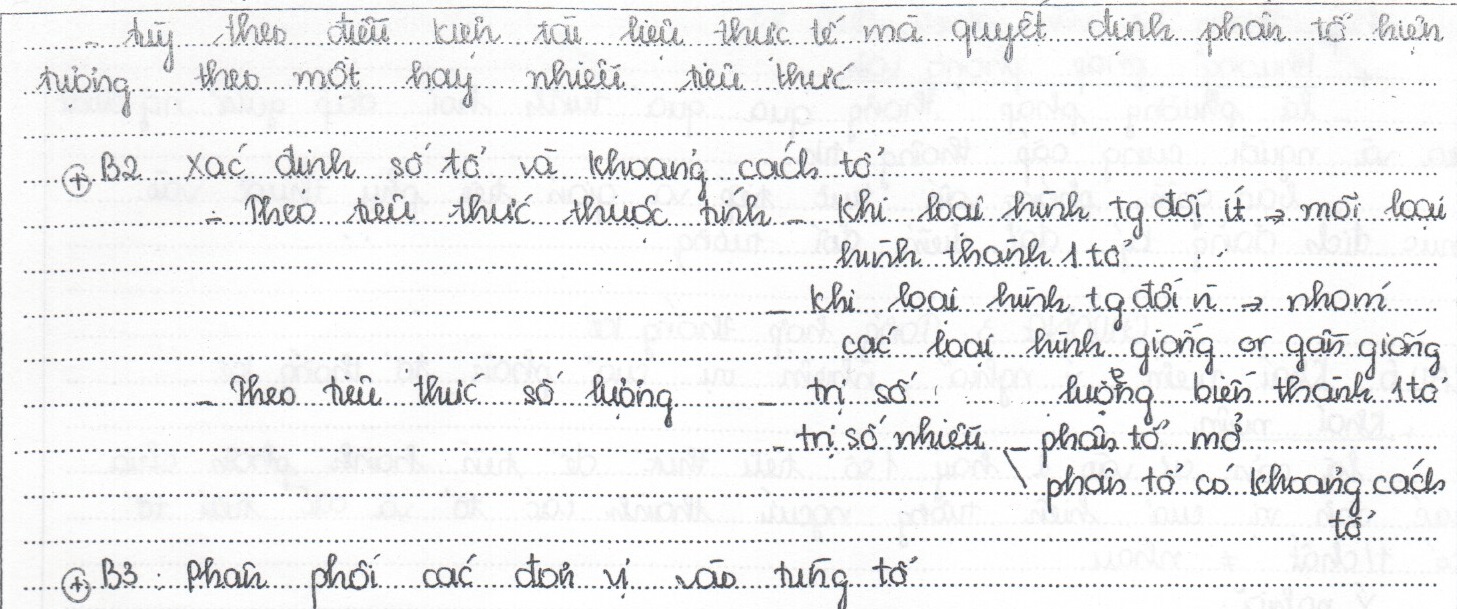 - tùy theo điều kiện tài liệu thực tế mà quyết định phân tổ hiện
tượng theo một hay nhiều tiêu thức
(+) B2 Xác định số tổ và khoảng cách tổ
- Theo tiêu thức thuộc tính - khi loại hình tg đối ít → mỗi loại
hình thành 1 tổ
- khi loại hình tg đối n → nhóm
các loại hình giống or gần giống
- Theo tiêu thức số lượng - trị số lượng biến thành 1 tổ
- trị số nhiều - phân tổ mở
\ phân tổ có khoảng cách
tổ
(+) B3: Phân phối các đơn vị vào từng tổ